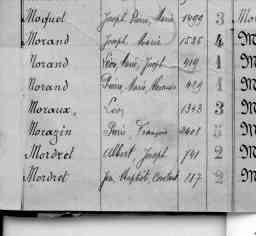 Moquet Joseph Pierre, Marie 1499 3
Morand Joseph Marie 1526 4
Morand Léon, Marie, Joseph 419 1
Morand Pierre, Marie, 429 1
Moraux, Léon 1343 3
Moragin Pierre François 2401 5
Mordret Albert, Joseph 741 2
Mordret Jean Baptiste, Constant 187 2